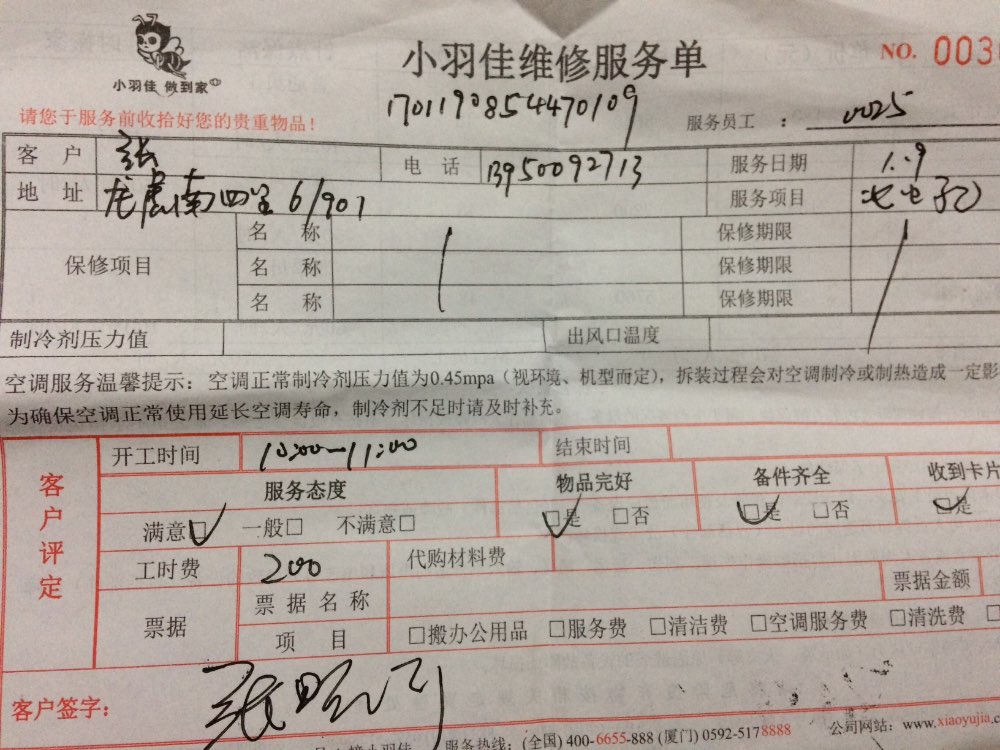 小羽佳维修服务单
NO. 003
小羽佳 做到家
1701190854470109
请您于服务前收拾好您的贵重物品!
服务员工 : 0025
客 户 张 电 话 13950092713 服务日期 1.9
地 址 龙虎南四里 6/901 服务项目
保修项目 名 称 保修期限
名 称 保修期限
名 称 保修期限
制冷剂压力值 出风口温度
空调服务温馨提示：空调正常制冷剂压力值为0.45mpa（视环境、机型而定），拆装过程会对空调制冷或制热造成一定影
为确保空调正常使用延长空调寿命，制冷剂不足时请及时补充。
客户评定
开工时间 10:00—11:00 结束时间
服务态度 物品完好 备件齐全 收到卡片
满意□ 一般□ 不满意□ □是 □否 □是 □否 □是
工时费 200 代购材料费
票据 票据名称 票据金额
项 目 □搬办公用品 □服务费 □清洁费 □空调服务费 □清洗费
客户签字：张
服务热线：(全国) 400-6655-888 (厦门) 0592-5178888 公司网站：www.xiaoyujia.c